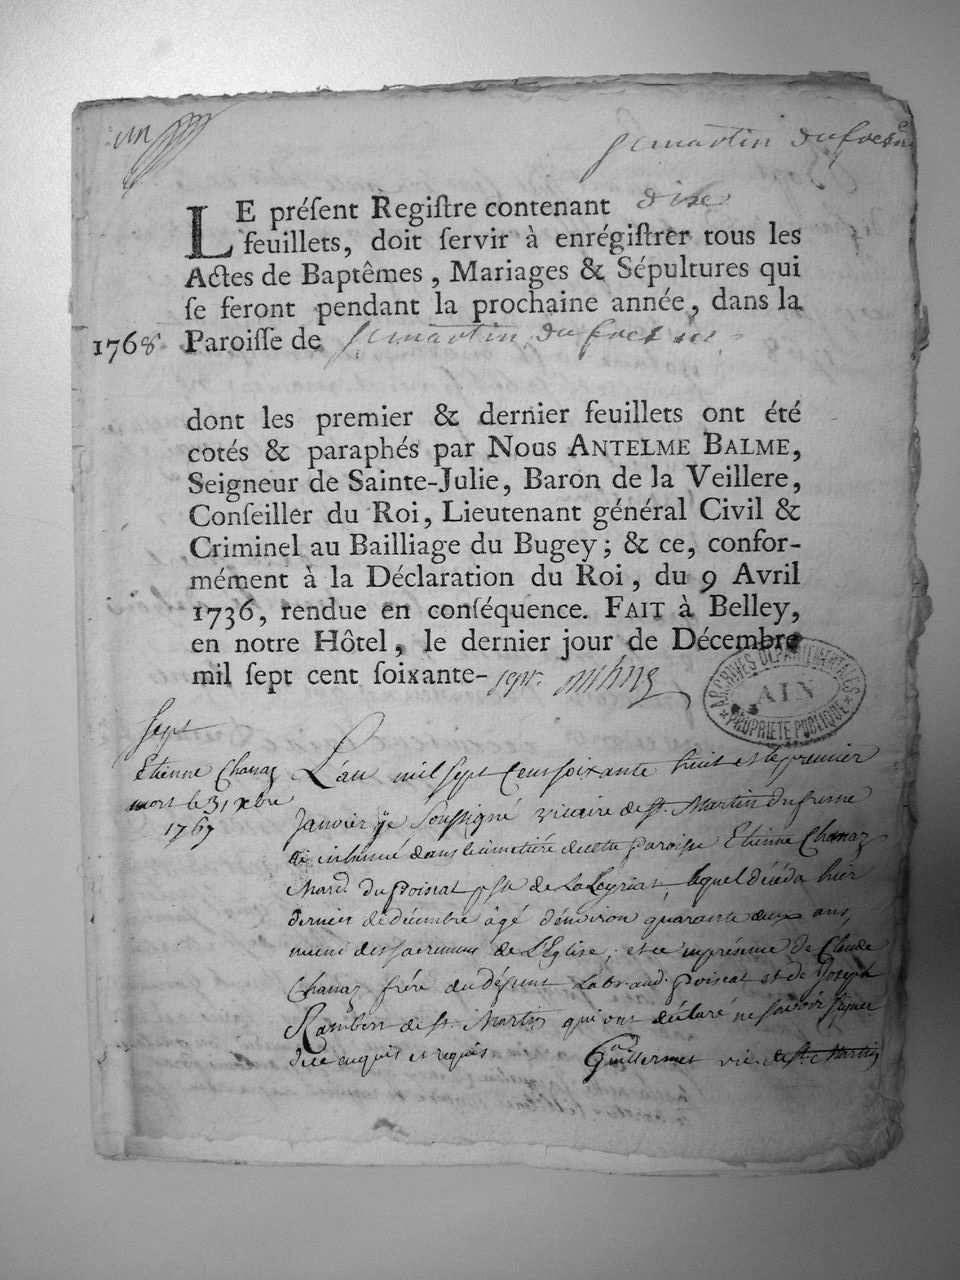 un
St martin du fresne
LE préſent Regiſtre contenant dixe
feuillets, doit ſervir à enrégiſtrer tous les
Actes de Baptêmes, Mariages & Sépultures qui
ſe feront pendant la prochaine année, dans la
1768 Paroiſſe de St martin du fresne
dont les premier & dernier feuillets ont été
cotés & paraphés par Nous ANTELME BALME,
Seigneur de Sainte-Julie, Baron de la Veillere,
Conſeiller du Roi, Lieutenant général Civil &
Criminel au Bailliage du Bugey; & ce, confor-
mément à la Déclaration du Roi, du 9 Avril
1736, rendue en conſéquence. FAIT à Belley,
en notre Hôtel, le dernier jour de Décembre
mil ſept cent ſoixante-sept.
ARCHIVES DÉPARTEMENTALES
AIN
PROPRIÉTÉ PUBLIQUE
Sept
Etienne Chanaz
mort le 31 xbre
1767
L'an mil sept Cent soixante huit et le premier
Janvier je soussigné vicaire de St. Martin du fresne
ai inhumé dans le cimetiére de cette paroisse Etienne Chanaz
Mard du poisat psse de La Leyriat, lequel décéda hier
dernier de décembre âgé d'environ quarante deux ans,
muni des sacremens de L'Eglise; et ce en présence de Claude
Chanaz frére du défunt Labrand. poisat et de Joseph
Rambert de St. Martin qui ont déclaré ne savoir signer
de ce enquis et requis Guillermet vic. de St. Martin